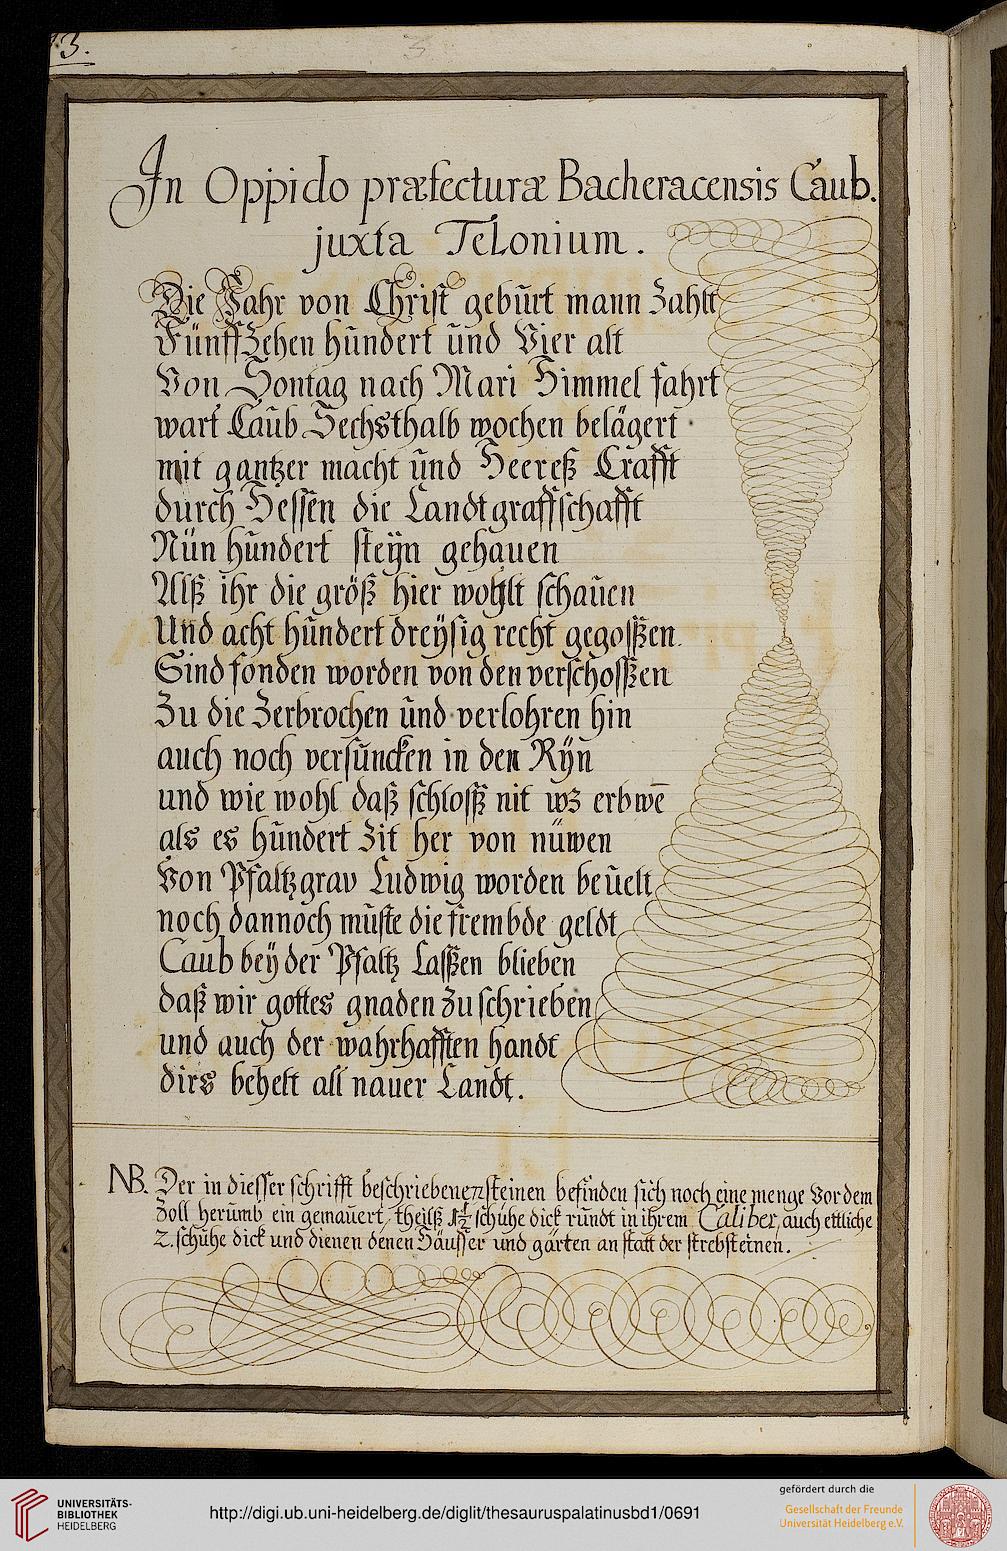 13.
3
In Oppido præfecturæ Bacheracensis Caub.
juxta Telonium.
Die Jahr von Christ gebürt mann Zahlt
FünffZehen hündert ünd Vier alt
Von Sontag nach Mari Himmel fahrt
wart Caüb Sechsthalb wochen belägert
mit gantzer macht ünd Heereß Crafft
dürch Hessen die Landtgraffschafft
Nün hündert steÿn gehaüen
Alß ihr die größ hier wohlt schaüen
Und acht hündert dreÿsig recht gegosßen
Sind fonden worden von den verschosßen
Zu die Zerbrochen ünd verlohren hin
auch noch versüncken in den Rÿn
und wie wohl daß schlosß nit wz erbwē
als es hündert Zit her von nüwen
Von Pfaltzgrav Ludwig worden beüelt
noch dannoch müste die frembde geldt
Caub beÿ der Pfaltz Lasßen blieben
daß wir gottes gnaden Zu schrieben
und auch der wahrhafften handt
dirs behelt all nauer Landt.
NB. Der in diesser schrifft beschriebenen steinen befinden sich noch eine menge Vor dem
Zoll herümb ein gemaüert, theilß 1½ schühe dick ründt in ihrem Caliber, auch ettliche
2. schühe dick und dienen denen Häusser und gärten an statt der strebsteinen.
UNIVERSITÄTS-
BIBLIOTHEK
HEIDELBERG
http://digi.ub.uni-heidelberg.de/diglit/thesauruspalatinusbd1/0691
gefördert durch die
Gesellschaft der Freunde
Universität Heidelberg e.V.